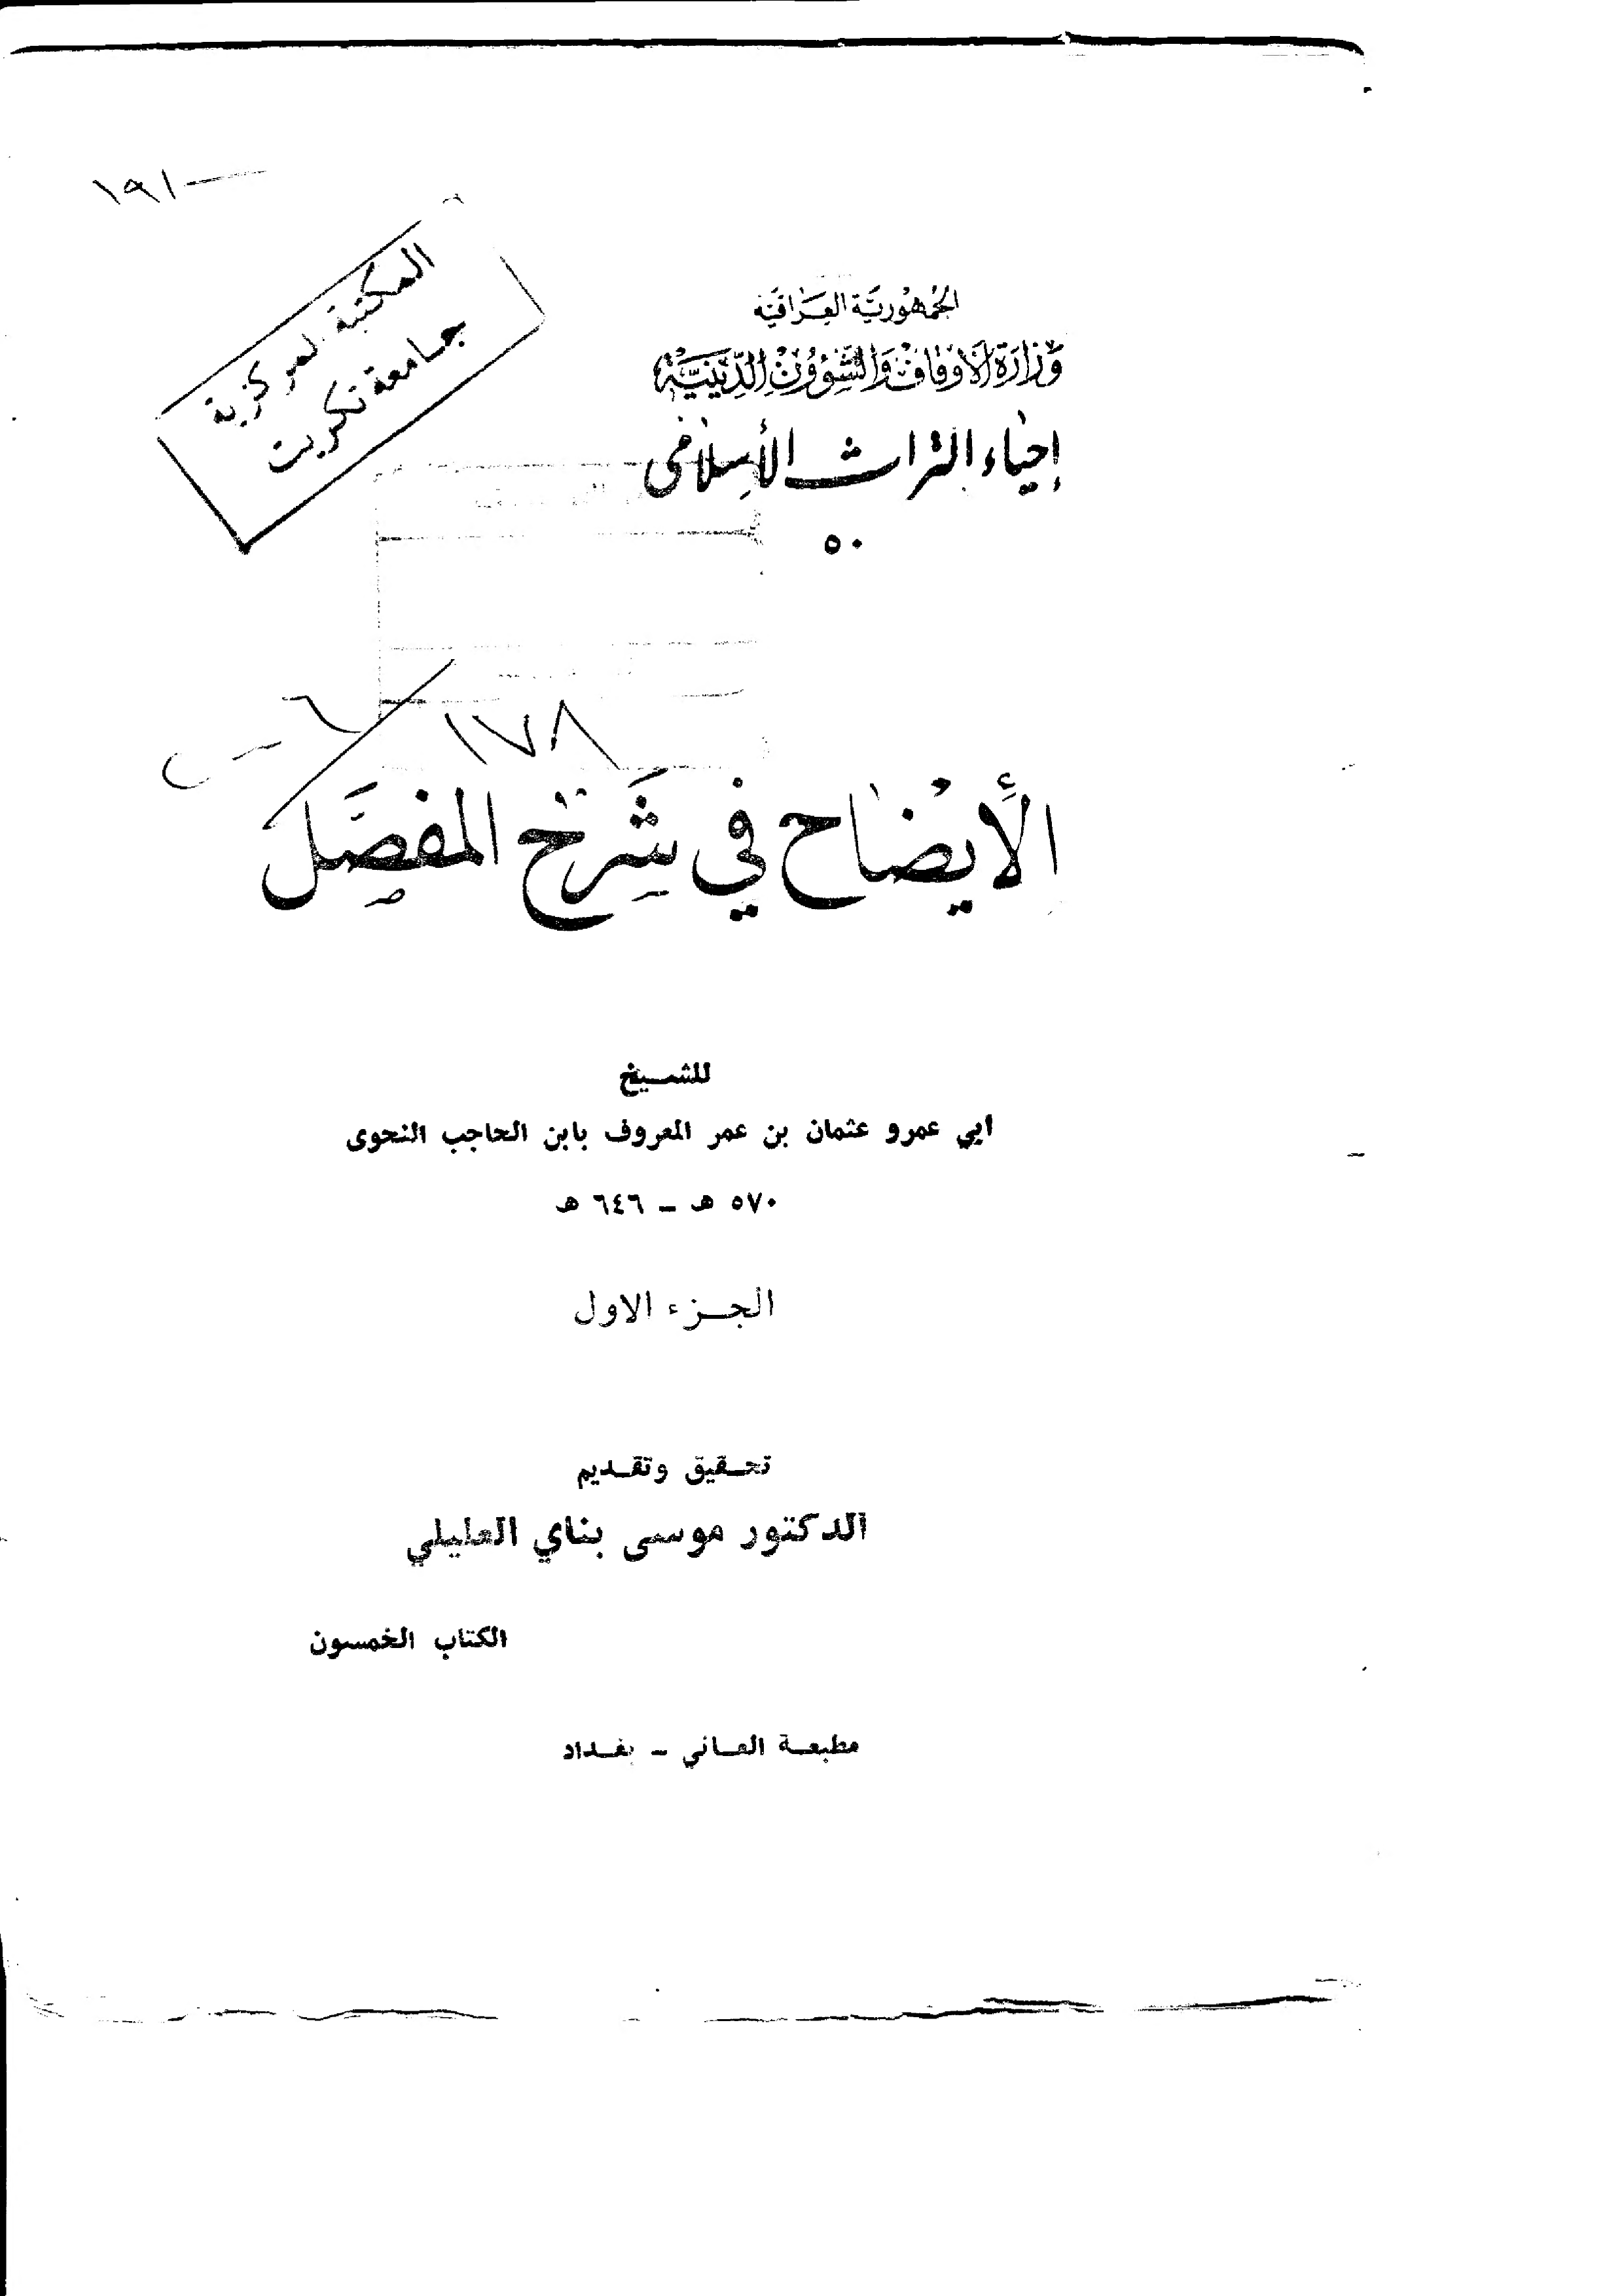 ١٩١
المكتبة المركزية
جامعة تكريت
الجُمْهُوريَّة العِرَاقيَّة
وَزَارَة الأَوْقَافْ وَالشُّؤُوْنْ الدِّيْنِيَّة
إحيَاء التراث الأسِلامى
٥٠
١٧٨
الأِيْضَاح في شَرِحْ المفصَّل
للشـيخ
ابي عمرو عثمان بن عمر المعروف بابن الحاجب النحوى
٥٧٠ هـ ــ ٦٤٦ هـ
الجـزء الاول
تحـقيق وتقـديم
الدكتور موسى بناي العليلي
الكتاب الخمسون
مطبعـة العـاني ــ بغـداد